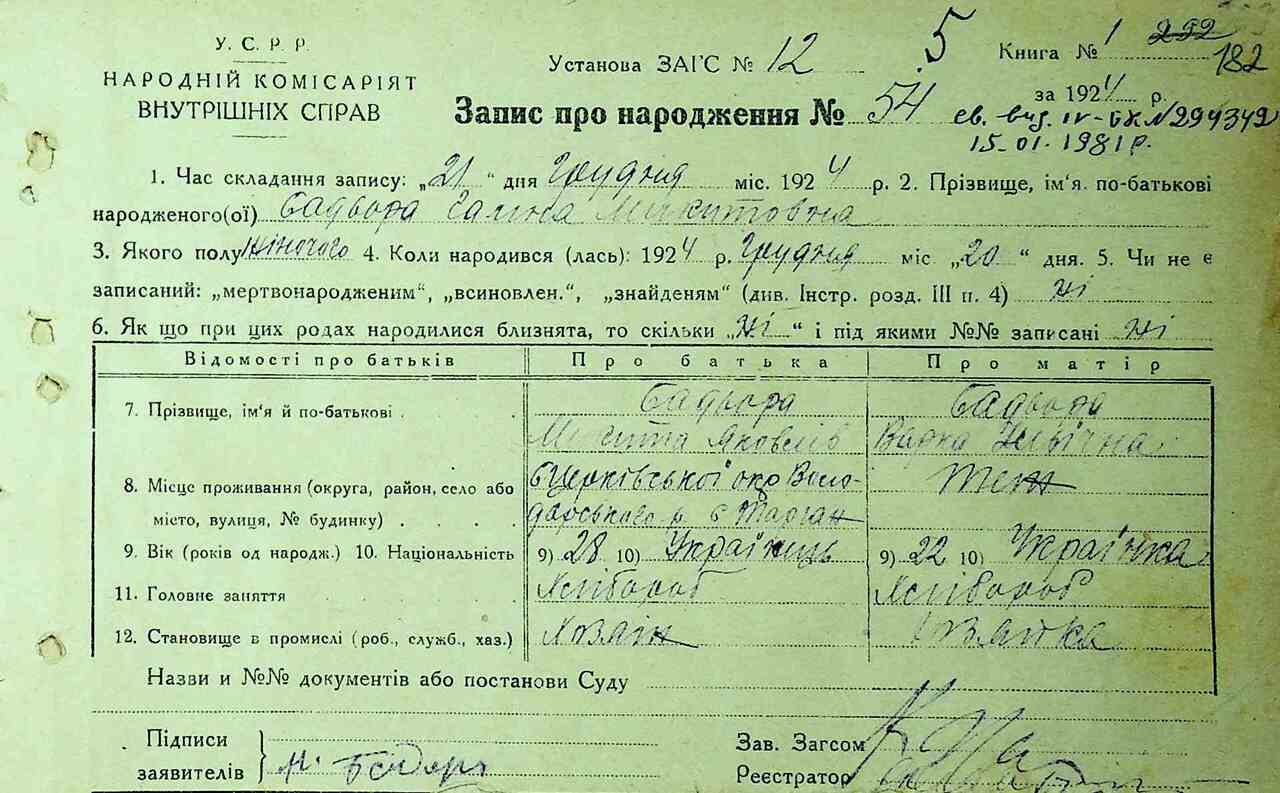 У. С. Р. Р.
НАРОДНІЙ КОМІСАРІЯТ
ВНУТРІШНІХ СПРАВ
Установа ЗАГС № 12
5
Книга № 1 182
за 1924 р.
Запис про народження № 54.
св. вид. IV-БК № 294349
15-01-1981 р.
1. Час складання запису: „21“ дня Грудня міс. 1924 р. 2. Прізвище, ім'я по-батькові
народженого(ої) Бадьора Галина Микитовна
3. Якого полу жіночого 4. Коли народився (лась): 1924 р. Грудня міс „20“ дня. 5. Чи не є
записаний: „мертвонародженим“, „всиновлен.“, „знайденям“ (див. Інстр. розд. III п. 4) ні
6. Як що при цих родах народилися близнята, то скільки „ні“ і під якими №№ записані ні
Відомості про батьків Про батька Про матір
7. Прізвище, ім'я й по-батькові . Бадьора Бадьора
Микита Яковлів
8. Місце проживання (округа, район, село або Бцерківської окр Воло- Теж
місто, вулиця, № будинку) . . . . дарського р. с Тарган
9. Вік (років од народж.) 10. Національність 9) 28 10) Українець 9) 22 10) Українка
11. Головне заняття Хлібороб Хлібороб
12. Становище в промислі (роб., служб., хаз.) Хозаін Хозайка
Назви и №№ документів або постанови Суду
Підписи
заявителів
Зав. Загсом
Реєстратор